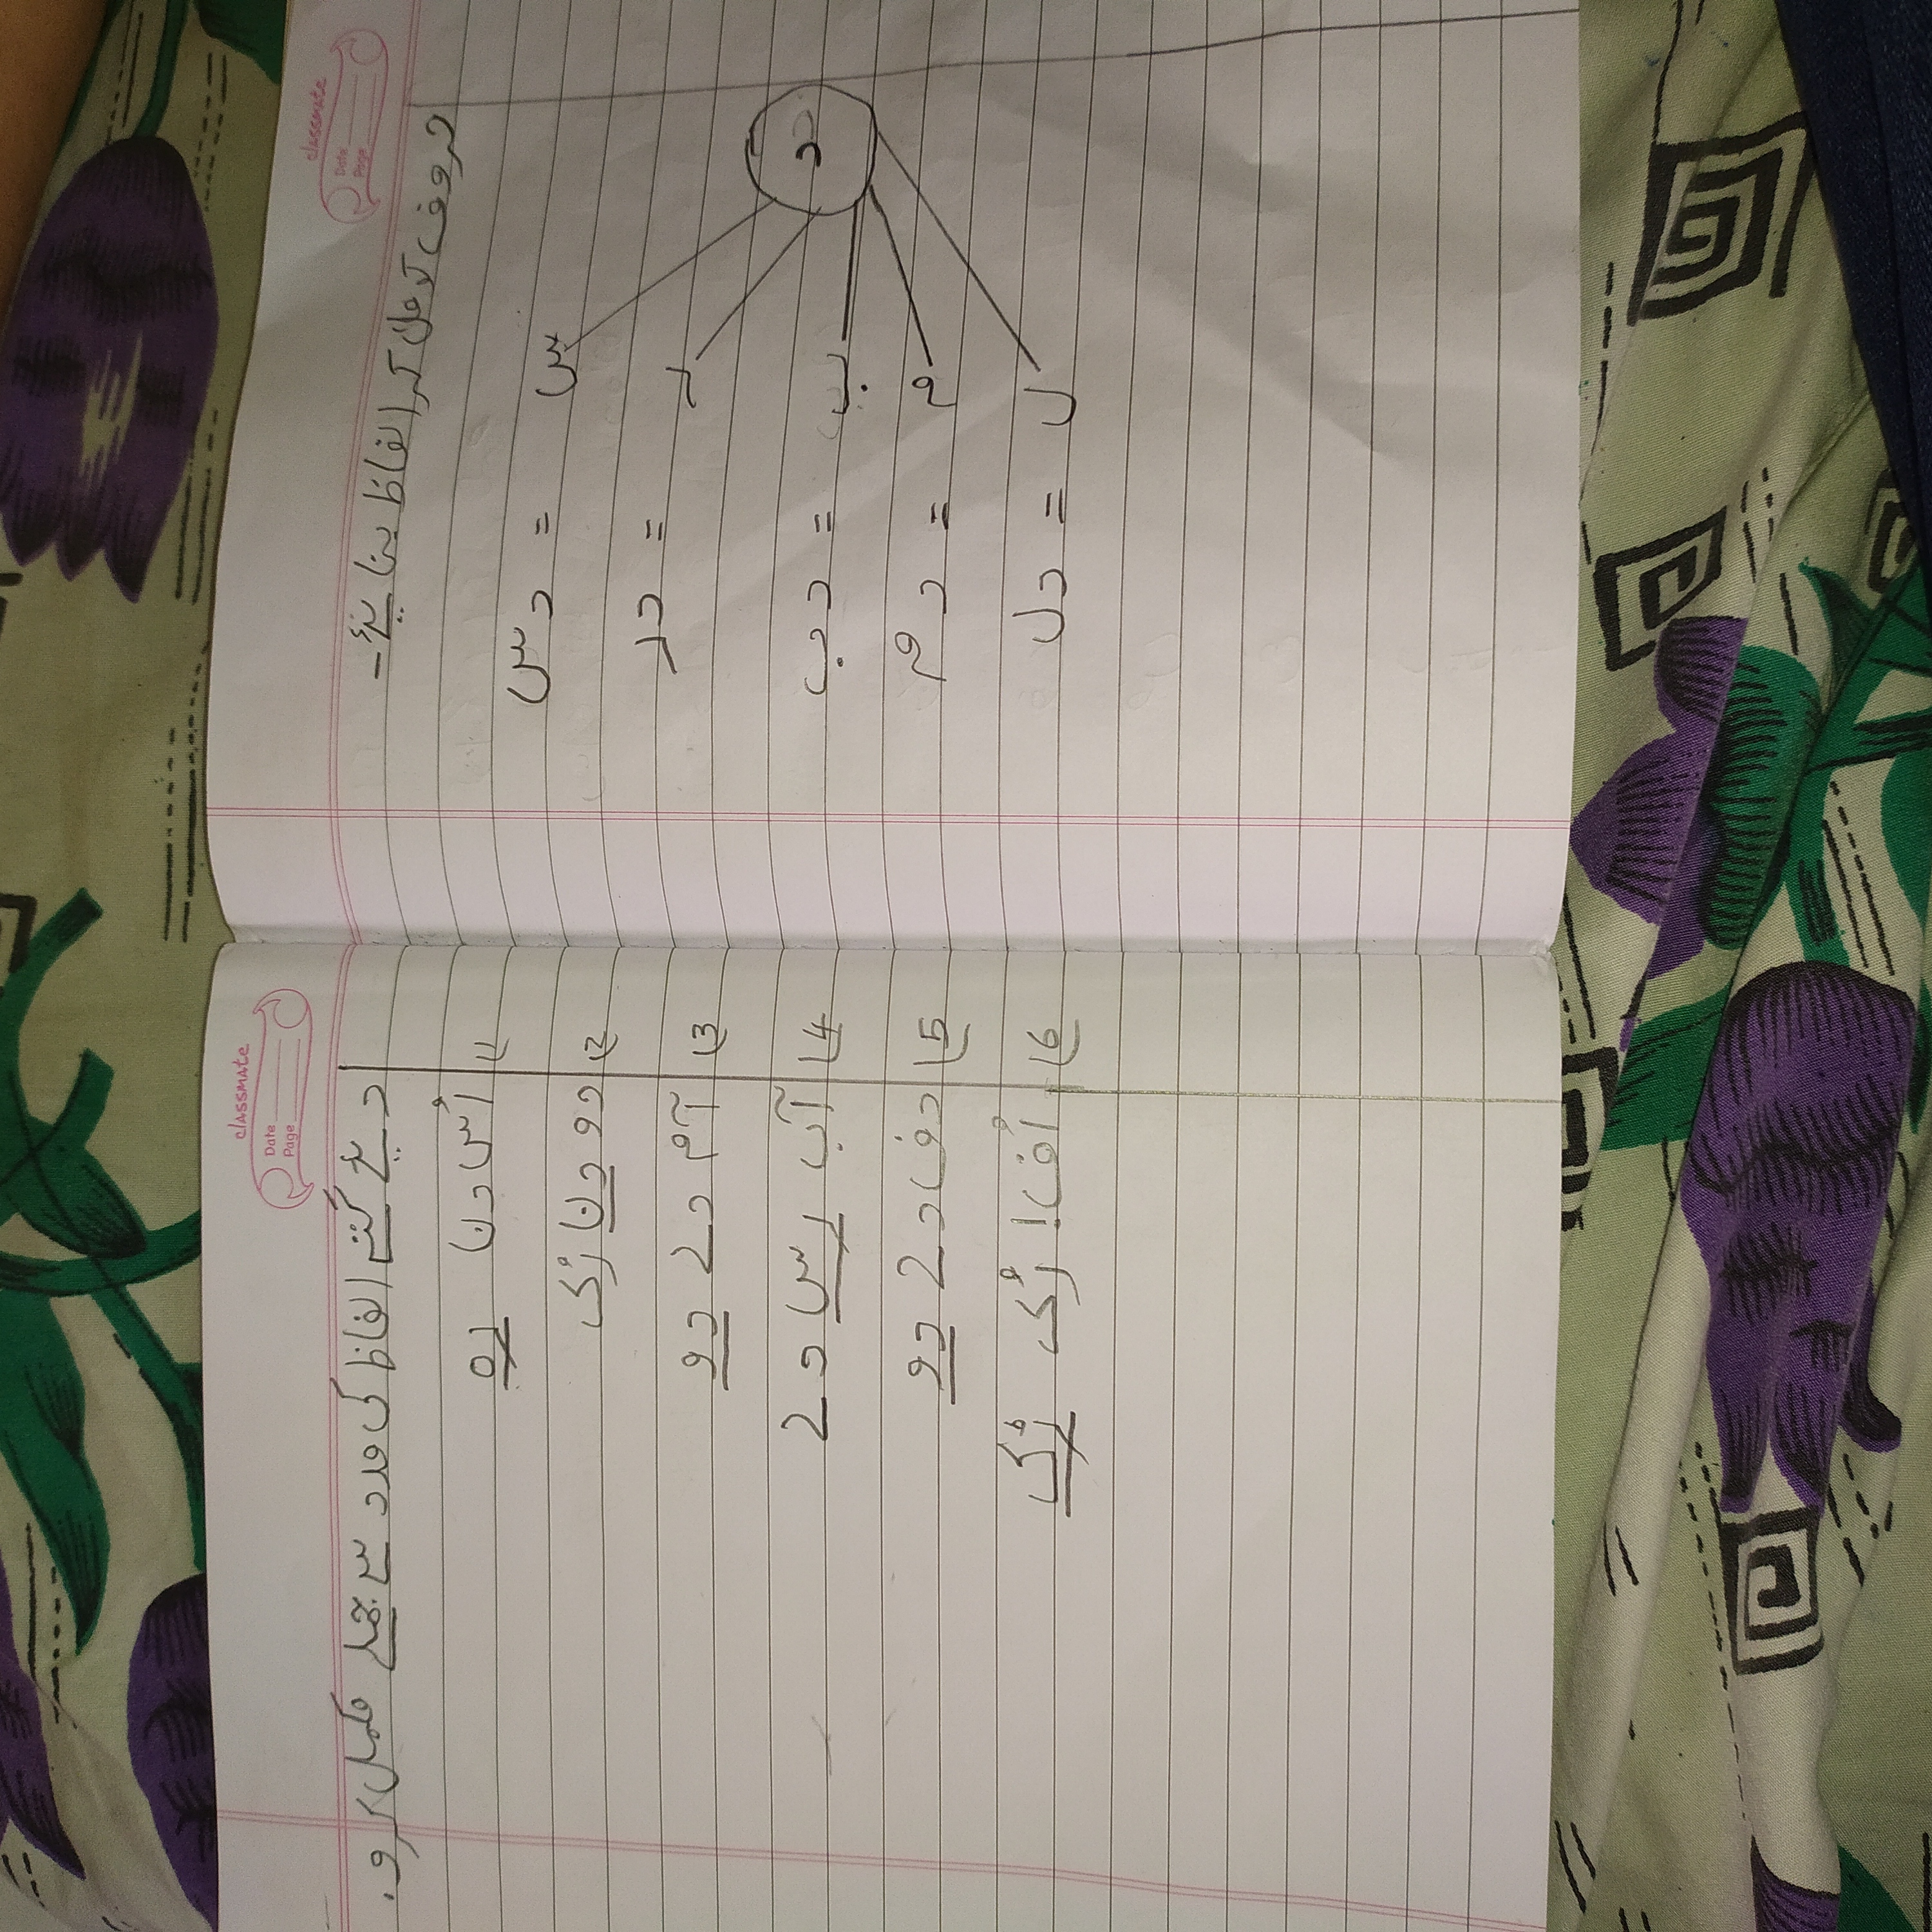 classmate
Date
Page
حروف کو ملا کر الفاظ بنا یئے۔
س = دس
ر = در
د
ب = دب
م = دم
ل = دل
classmate
Date
Page
دیے گئے الفاظ کی مدد سے جملے مکمل کرو۔
1) اُس دن رہ
2) دو دن رُک
3) آم دے دو
4) آب رس دے
5) دف دے دو
6) اُف! رُک رُک